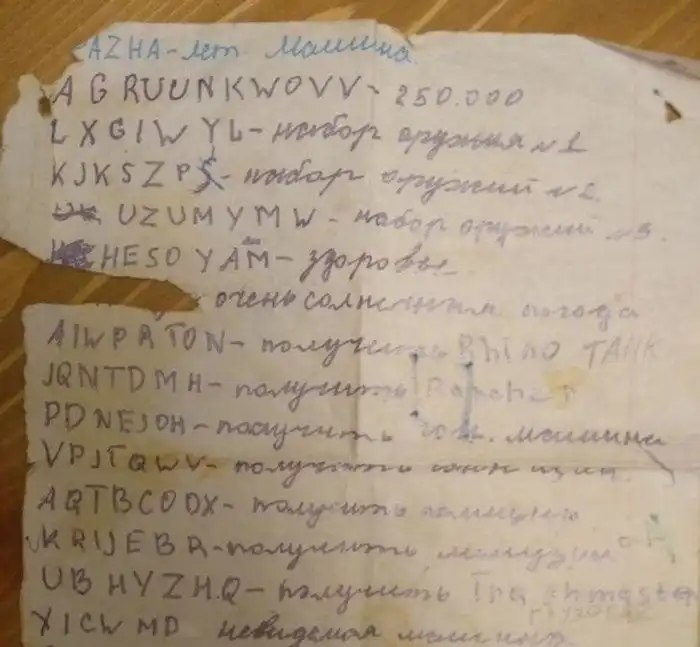 AZHA - лет. Машина
AGRUUNKWOVV - 250.000
LXGIWYL - набор оружия №1
KJKSZPS - набор оружий №2
UZUMYMW - набор оружий №3.
HESOYAM - здоровье
очень солнечная погода
AIWPRTON - получить Rhino TANK
JQNTDMH - получить Rancher
PDNEJOH - получить гон. машина
VPJTQWV - получить гон.
AQTBCODX - получить
KRIJEBR - получить лимузин
UBHYZHQ - получить Trashmaster
XICWMD невидемая машина